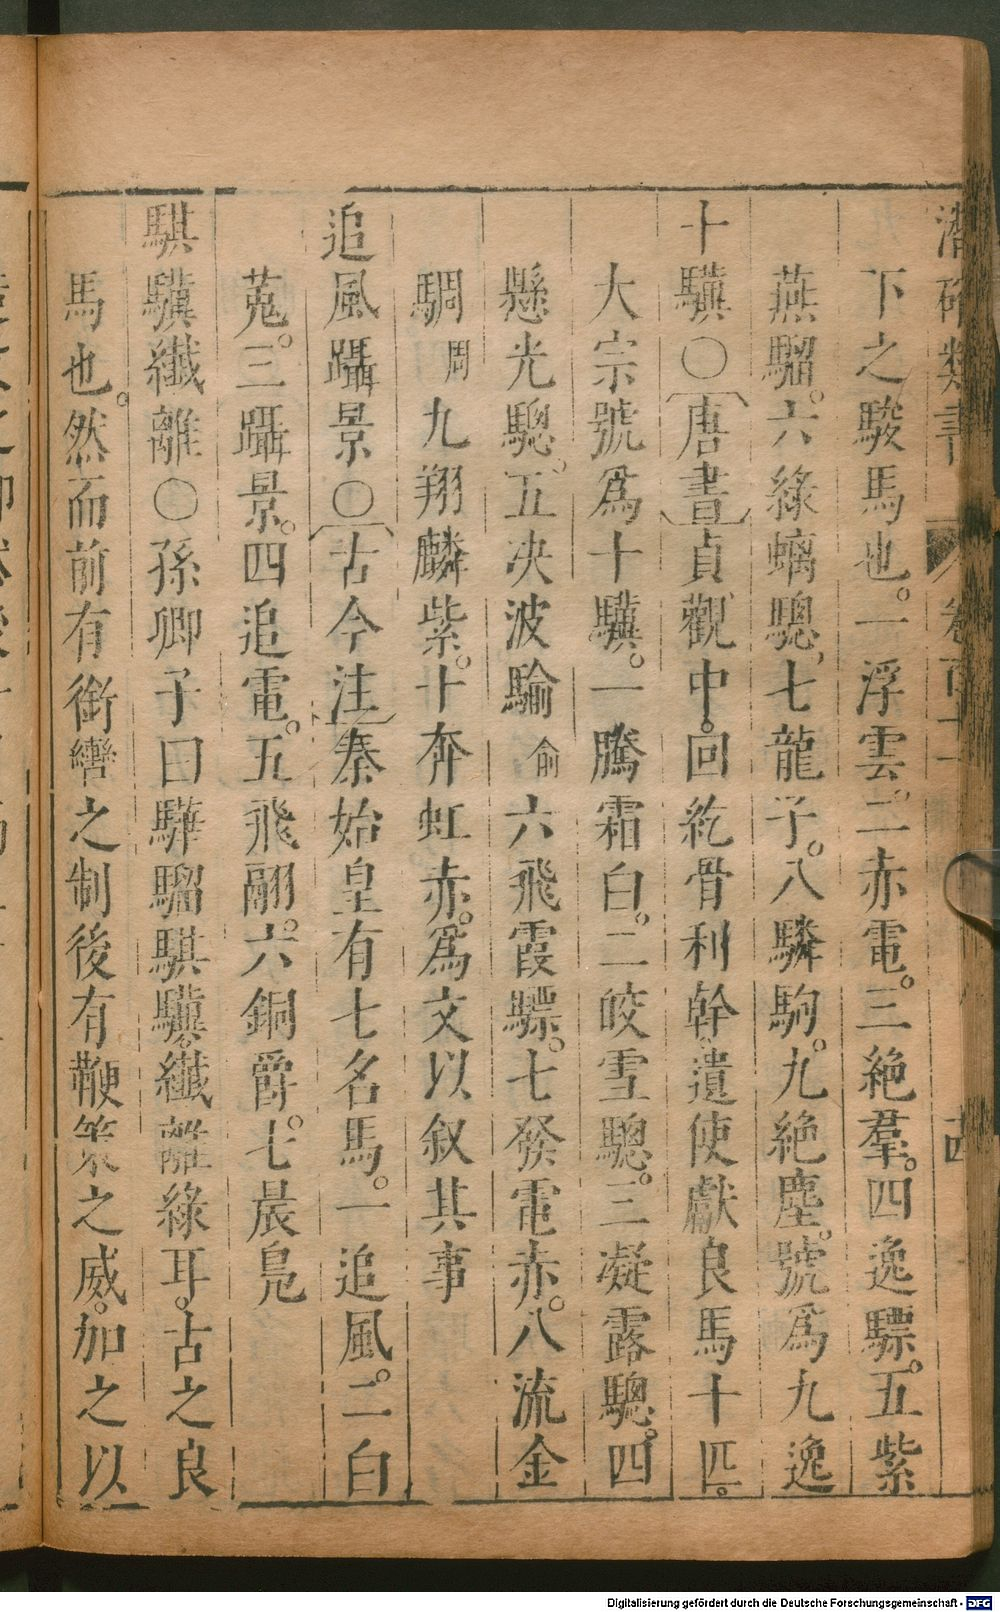 潛確類書 卷百十一 十四
下之駿馬也。一浮雲。二赤電。三絶羣。四逸驃。五紫
燕騮。六綠螭驄。七龍子。八驎駒。九絶塵。號爲九逸
十驥〇〔唐書〕貞觀中。回紇骨利幹。遺使獻良馬十匹。
大宗號爲十驥。一騰霜白。二皎雪驄。三凝露驄。四
懸光驄。五决波騟俞六飛霞驃。七發電赤。八流金
騆周九翔麟紫。十奔虹赤。爲文以叙其事
追風躡景〇〔古今注〕秦始皇有七名馬。一追風。二白
菟。三躡景。四追電。五飛翮。六銅爵。七晨鳧
騏驥纖離〇孫卿子曰驊騮騏驥。纖離綠耳。古之良
馬也。然而前有銜轡之制後有鞭策之威。加之以
Digitalisierung gefördert durch die Deutsche Forschungsgemeinschaft - DFG